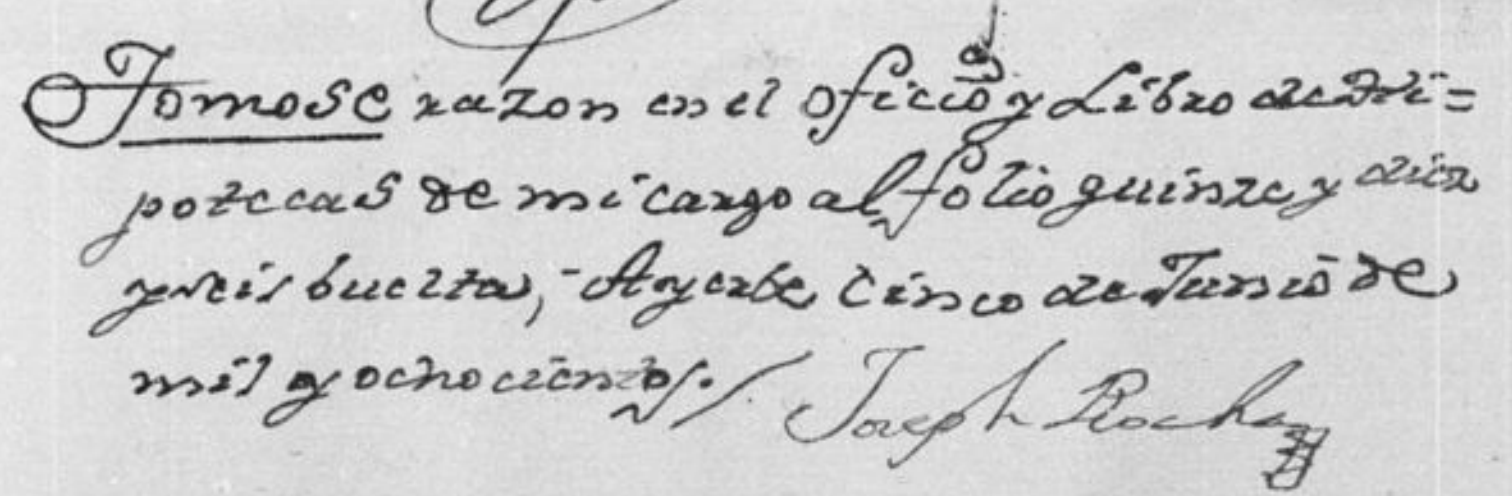 Tomose razon en el oficio y Libro de Ypi=
potecas de mi cargo al folio quinze y diez
y seis buelta, Ayerbe Cinco de Junio de
mil y ochocientos. Joseph Rocha